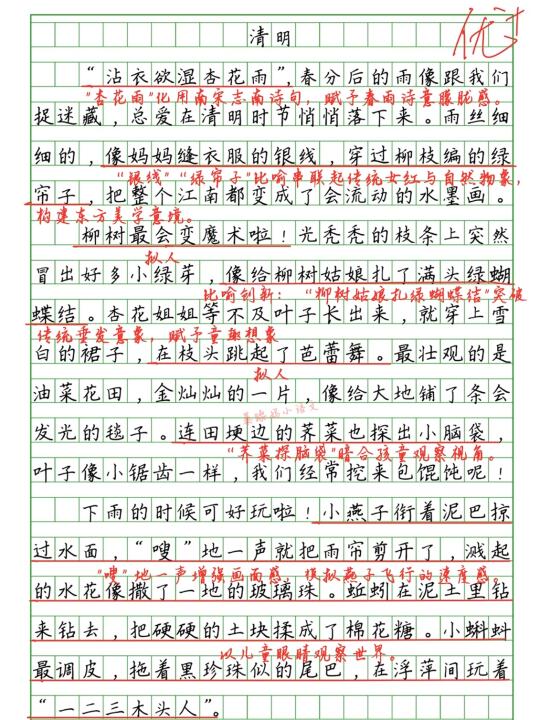 清明
优+
“沾衣欲湿杏花雨”,春分后的雨像跟我们
"杏花雨"化用南宋志南诗句，赋予春雨诗意朦胧感。
捉迷藏，总爱在清明时节悄悄落下来。雨丝细
细的，像妈妈缝衣服的银线，穿过柳枝编的绿
"银线""绿帘子"比喻串联起传统女红与自然物象，
帘子，把整个江南都变成了会流动的水墨画。
构建东方美学意境。
柳树最会变魔术啦！光秃秃的枝条上突然
拟人
冒出好多小绿芽，像给柳树姑娘扎了满头绿蝴
比喻创新：“柳树姑娘扎绿蝴蝶结"突破
蝶结。杏花姐姐等不及叶子长出来，就穿上雪
传统垂发意象，赋予童趣想象
白的裙子，在枝头跳起了芭蕾舞。最壮观的是
拟人
油菜花田，金灿灿的一片，像给大地铺了条会
发光的毯子。连田埂边的荠菜也探出小脑袋，
"荠菜探脑袋"暗合孩童观察视角。
叶子像小锯齿一样，我们经常挖来包馄饨呢！
下雨的时候可好玩啦！小燕子衔着泥巴掠
过水面，“嗖”地一声就把雨帘剪开了，溅起
"嗖"地一声增强画面感 模拟燕子飞行的速度感。
的水花像撒了一地的玻璃珠。蚯蚓在泥土里钻
来钻去，把硬硬的土块揉成了棉花糖。小蝌蚪
以儿童眼睛观察世界。
最调皮，拖着黑珍珠似的尾巴，在浮萍间玩着
“一二三木头人”。